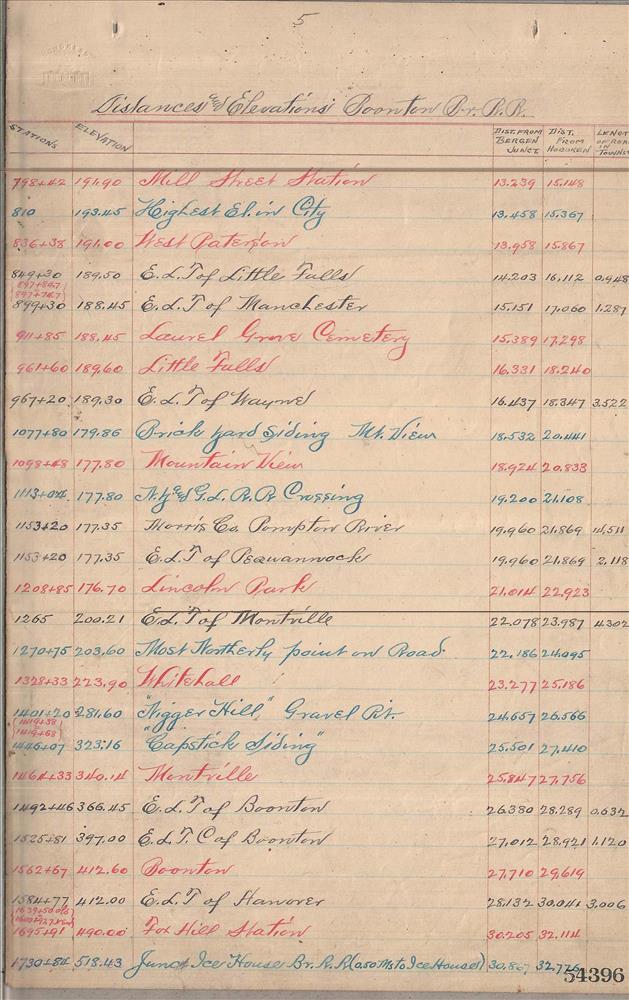 5
Distances and Elevations Boonton Br. R.R.
STATIONS ELEVATION DIST. FROM BERGEN JUNCT. DIST. FROM HOBOKEN LENGT OF ROAD IN TOWNS
798+42 191.90 Mill Street Station 13.239 15.148
810 193.45 Highest El. in City 13.458 15.367
836+38 191.00 West Paterson 13.958 15.867
849+30 189.50 E.L.T of Little Falls 14.203 16.112 0.948
897+847
897+747
899+30 188.45 E.L.T of Manchester 15.151 17.060 1.287
911+85 188.45 Laurel Grove Cemetery 15.389 17.298
961+60 189.60 Little Falls 16.331 18.240
967+20 189.30 E.L.T of Wayne 16.437 18.347 3.522
1077+80 179.86 Brick yard Siding Mt. View 18.532 20.441
1098+48 177.80 Mountain View 18.924 20.833
1113+04 177.80 N.Y. and G.L. R.R Crossing 19.200 21.108
1153+20 177.35 Morris Co. Pompton River 19.960 21.869 14.511
1153+20 177.35 E.L.T of Pequannock 19.960 21.869 2.118
1208+85 176.70 Lincoln Park 21.014 22.923
1265 200.21 E.L.T of Montville 22.078 23.987 4.302
1270+75 203.60 Most Northerly point on Road. 22.186 24.095
1328+33 223.90 Whitehall 23.277 25.186
1401+20 281.60 "Nigger Hill" Gravel Pit. 24.657 26.566
1419+58
1419+68
1446+07 323.16 "Capstick Siding" 25.501 27.410
1464+33 340.14 Montville 25.847 27.756
1492+46 366.45 E.L.T of Boonton 26.380 28.289 0.632
1525+81 397.00 E.L.T. C of Boonton 27.012 28.921 1.120
1562+67 412.60 Boonton 27.710 29.619
1584+77 412.00 E.L.T of Hanover 28.132 30.041 3.006
1695+91 490.00 Fox Hill Station 30.205 32.114
1730+84 518.43 Junct Ice House Br. R.R (0.50 Ms to Ice House) 30.867 32.776
54396